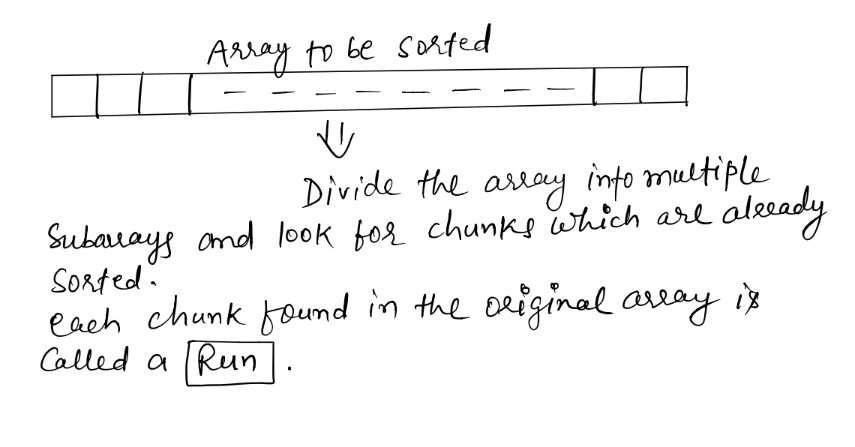 Array to be sorted
Divide the array into multiple
Subarrays and look for chunks which are already
Sorted.
each chunk found in the original array is
Called a Run.